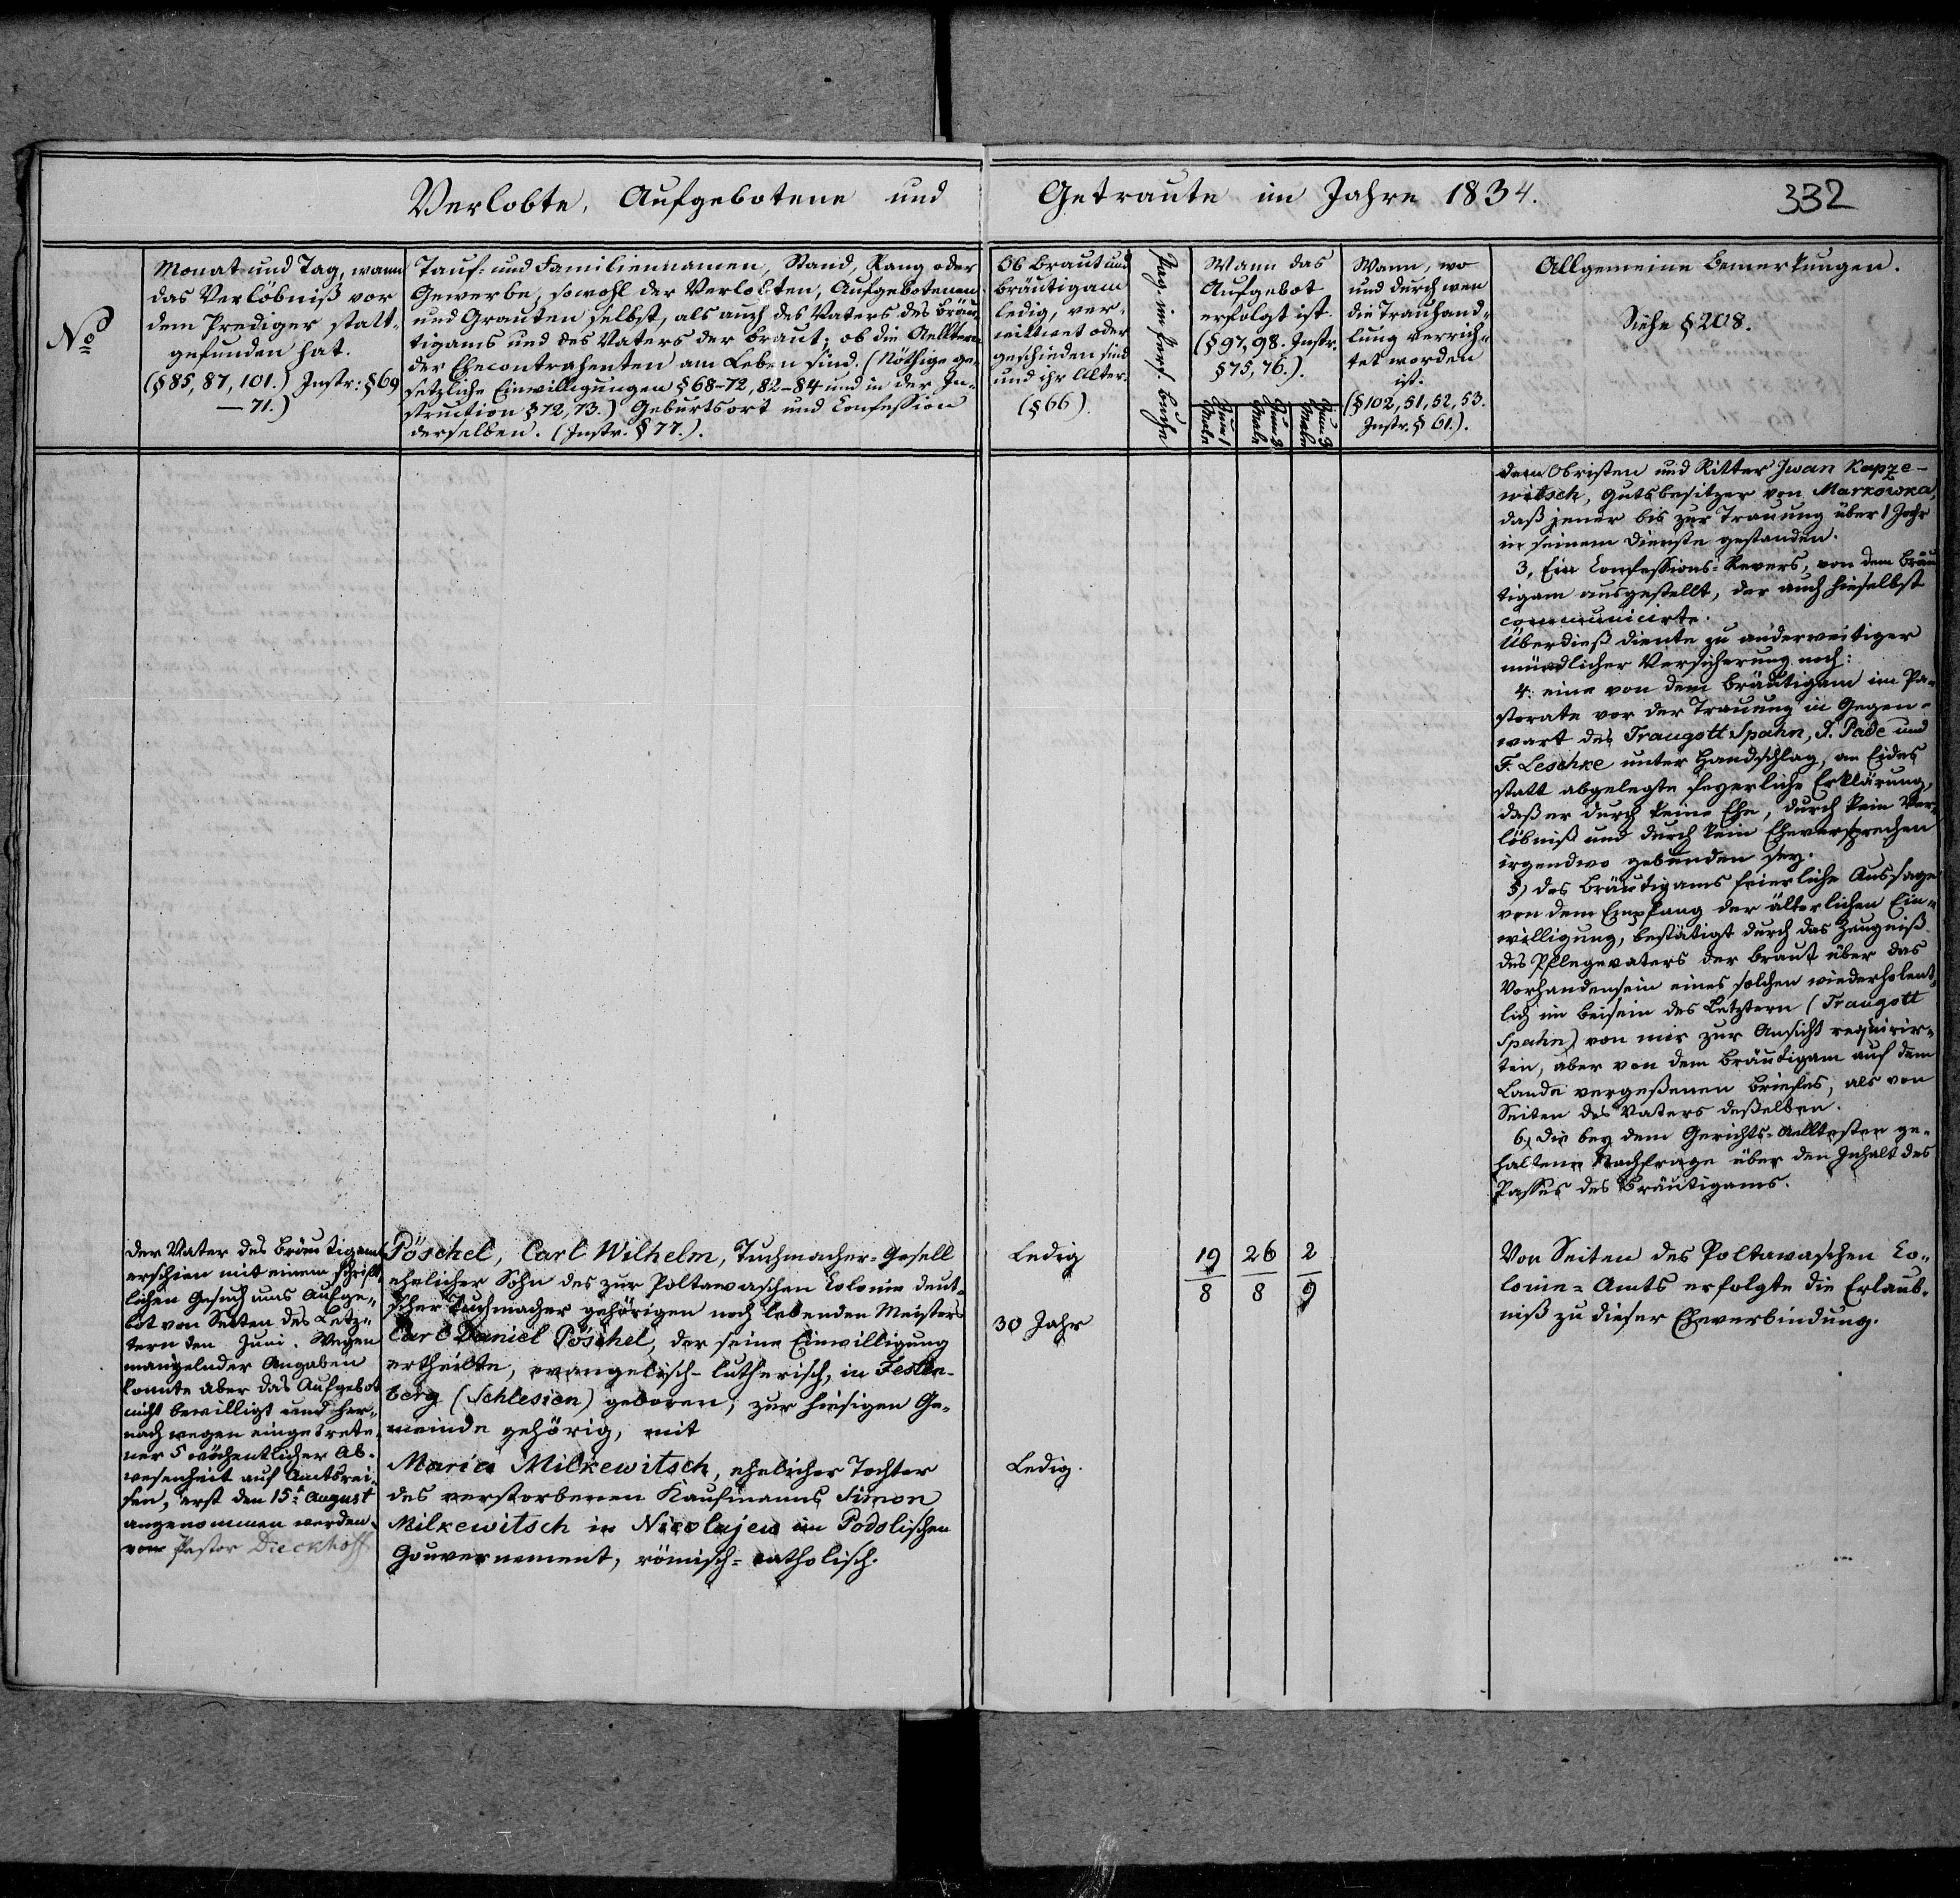 Verlobte, Aufgebotene und Getraute im Jahre 1834.
332
No
Monat und Tag, wann
das Verlöbniß vor
dem Prediger statt-
gefunden hat.
(§85, 87, 101.) Instr: §69
—71.)
Tauf- und Familiennamen, Stand, Rang oder
Gewerbe, sowohl der Verlobten, Aufgebotenen
und Getrauten selbst, als auch des Vaters des Bräu-
tigams und des Vaters der Braut; ob die Aelltern
der Ehecontrahenten am Leben sind. (Nöthige ge-
setzliche Einwilligungen §68-72, 82-84 und in der In-
struction §72, 73.) Geburtsort und Confession
derselben. (Instr. §77.).
Ob Braut und
Bräutigam
ledig, ver-
wittwet oder
geschieden sind
und ihr Alter.
(§66).
Pag. im Pers. Buche
Wann das
Aufgebot
erfolgt ist.
(§97, 98. Instr.
§75, 76.).
Zum 1 Male
Zum 2 Male
Zum 3 Male
Wann, wo
und durch wen
die Trauhand-
lung verrich-
tet worden
ist.
(§102, 51, 52, 53.
Instr. §61.).
Allgemeine Bemerkungen.
Siehe §208.
dem Obristen und Ritter Iwan Kapze-
witsch, Gutsbesitzer von Markowka,
daß jener bis zur Trauung über 1 Jahr
in seinem Dienste gestanden.
3, Ein Confessions-Revers, von dem Bräu
tigam ausgestellt, der auch hieselbst
communicirte.
Überdieß diente zu anderweitiger
mündlicher Versicherung noch:
4. eine von dem Bräutigam im Pa-
storate vor der Trauung in Gegen-
wart des Traugott Spahn, J. Pade und
F. Leschke unter Handschlag, an Eides
statt abgelegte feyerliche Erklärung,
daß er durch keine Ehe, durch kein Ver-
löbniß und durch kein Eheversprechen
irgendwo gebunden sey.
5) des Bräutigams feierliche Aussage
von dem Empfang der älterlichen Ein-
willigung, bestätigt durch das Zeugniß
des Pflegevaters der Braut über das
Vorhandensein eines solchen wiederholent-
lich im Beisein des Letztern (Traugott
Spahn) von mir zur Ansicht requirir-
ten, aber von dem Bräutigam auf dem
Lande vergeßenen Briefes, als von
Seiten des Vaters deßelben.
6, Die bey dem Gerichts-Aelltesten ge-
haltene Nachfrage über den Inhalt des
Passes des Bräutigams.
Der Vater des Bräutigams
erschien mit einem schrift-
lichen Gesuch ums Aufge-
bot von Seiten des Letz-
tern den Juni. Wegen
mangelnder Angaben
konnte aber das Aufgebot
nicht bewilligt und her-
nach wegen eingetrete-
ner 5 wöchentlicher Ab-
wesenheit auf Amtsrei-
sen, erst den 15t August
angenommen werden.
vom Pastor Dieckhoff
Pöschel, Carl Wilhelm, Tuchmacher-Gesell
ehelicher Sohn des zur Poltawaschen Colonie deut-
scher Tuchmacher gehörigen noch lebenden Meisters
Carl Daniel Pöschel, der seine Einwilligung
ertheilte, evangelisch-lutherisch, in Festen-
berg (Schlesien) geboren, zur hiesigen Ge-
meinde gehörig, mit
Maria Milkewitsch, ehelicher Tochter
des verstorbenen Kaufmanns Simon
Milkewitsch in Nicolajew im Podolischen
Gouvernement, römisch-catholisch.
Ledig
30 Jahr
Ledig.
19 26 2
8 8 9
Von Seiten des Poltawaschen Co-
lonie-Amts erfolgte die Erlaub-
niß zu dieser Eheverbindung.